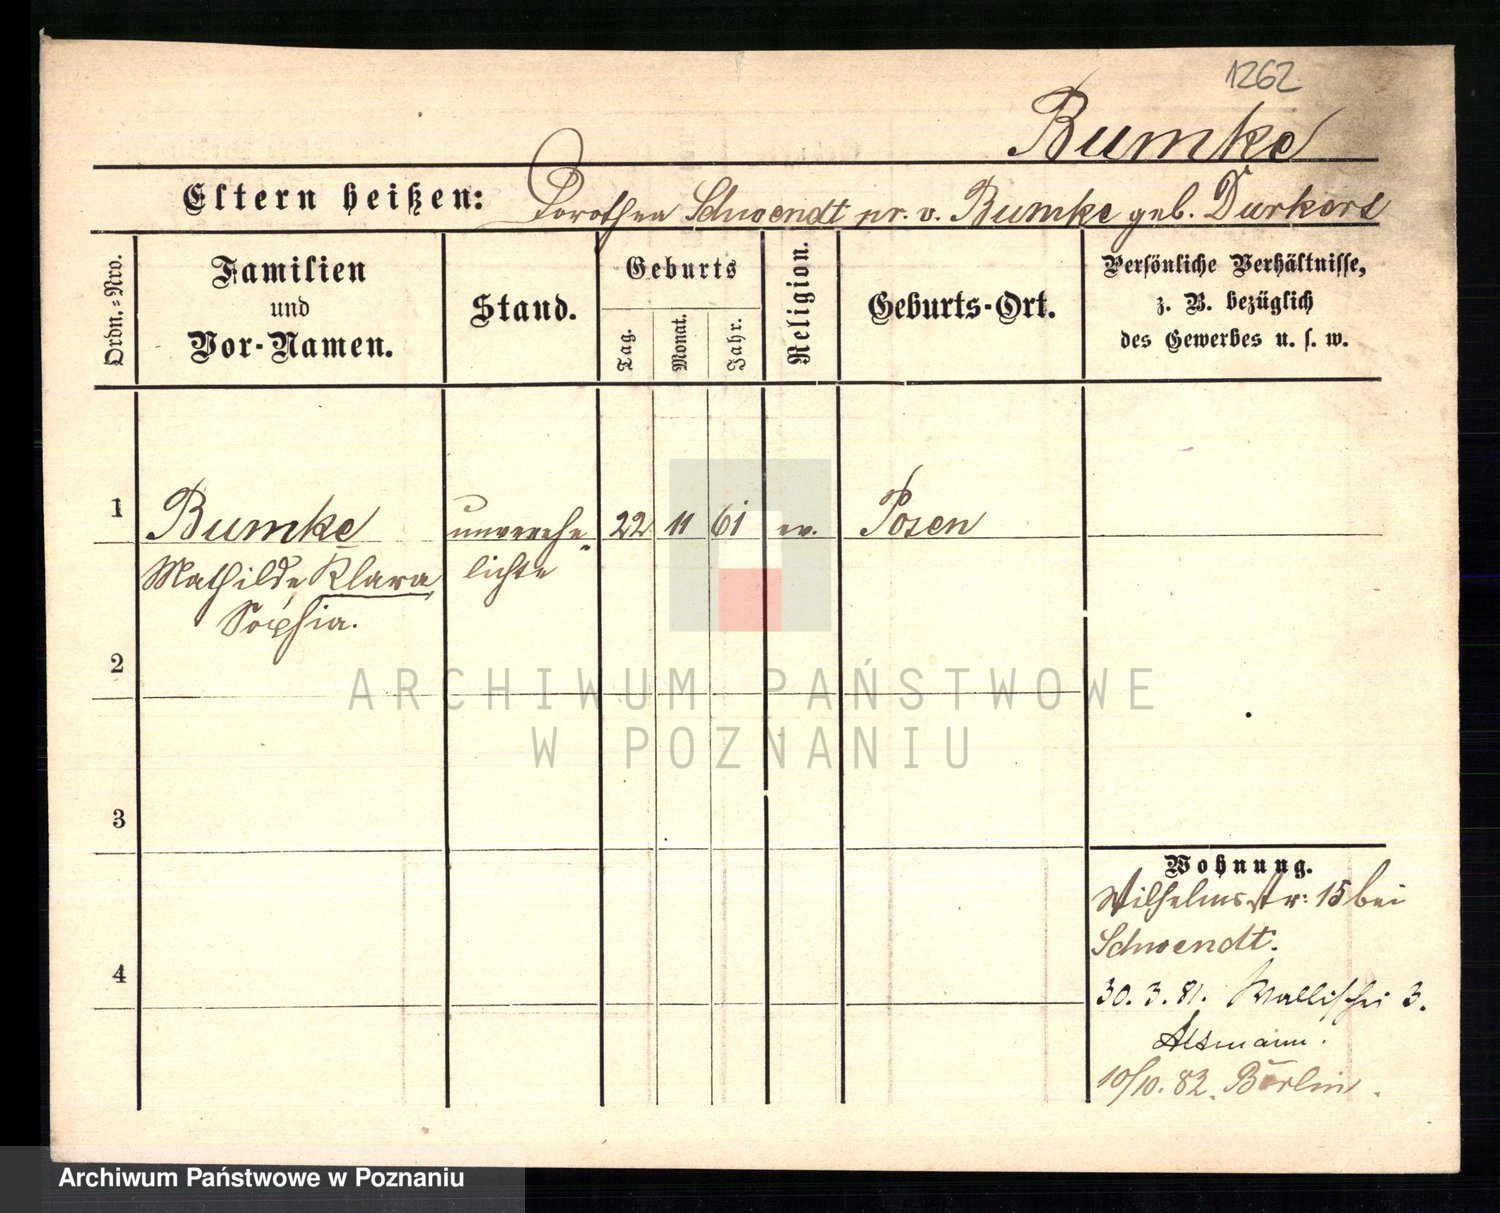 1262
Bumke
Eltern heißen: Dorothea Schwendt pr. v. Bumke geb. Durkers
Ordn.=Nro.
Familien
und
Vor-Namen.
Stand.
Geburts
Tag.
Monat.
Jahr.
Religion.
Geburts-Ort.
Persönliche Verhältnisse,
z. B. bezüglich
des Gewerbes u. s. w.
1 Bumke unverehe= 22 11 61 ev. Posen
Mathilde, Klara, lichte
Sophia.
2
3
4
Wohnung.
Wilhelmsstr: 15 bei
Schwendt.
30. 3. 81. Wallischei 3.
10/10. 82. Berlin.
ARCHIWUM PAŃSTWOWE
W POZNANIU
Archiwum Państwowe w Poznaniu